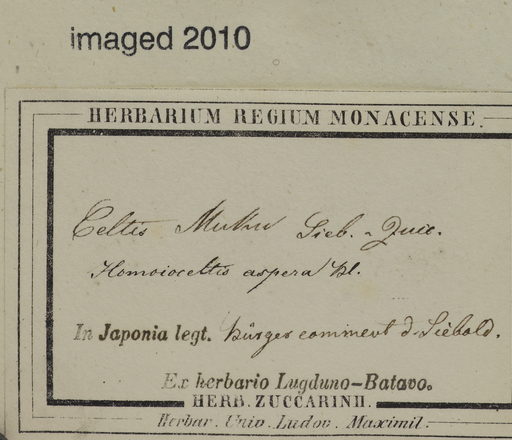 imaged 2010
HERBARIUM REGIUM MONACENSE.
Celtis Muku Sieb. Zucc.
Homoioceltis aspera Bl.
In Japonia legt. Bürger comment d. Siebold.
Ex herbario Lugduno-Batavo.
HERB. ZUCCARINII.
Herbar. Univ. Ludov. Maximil.